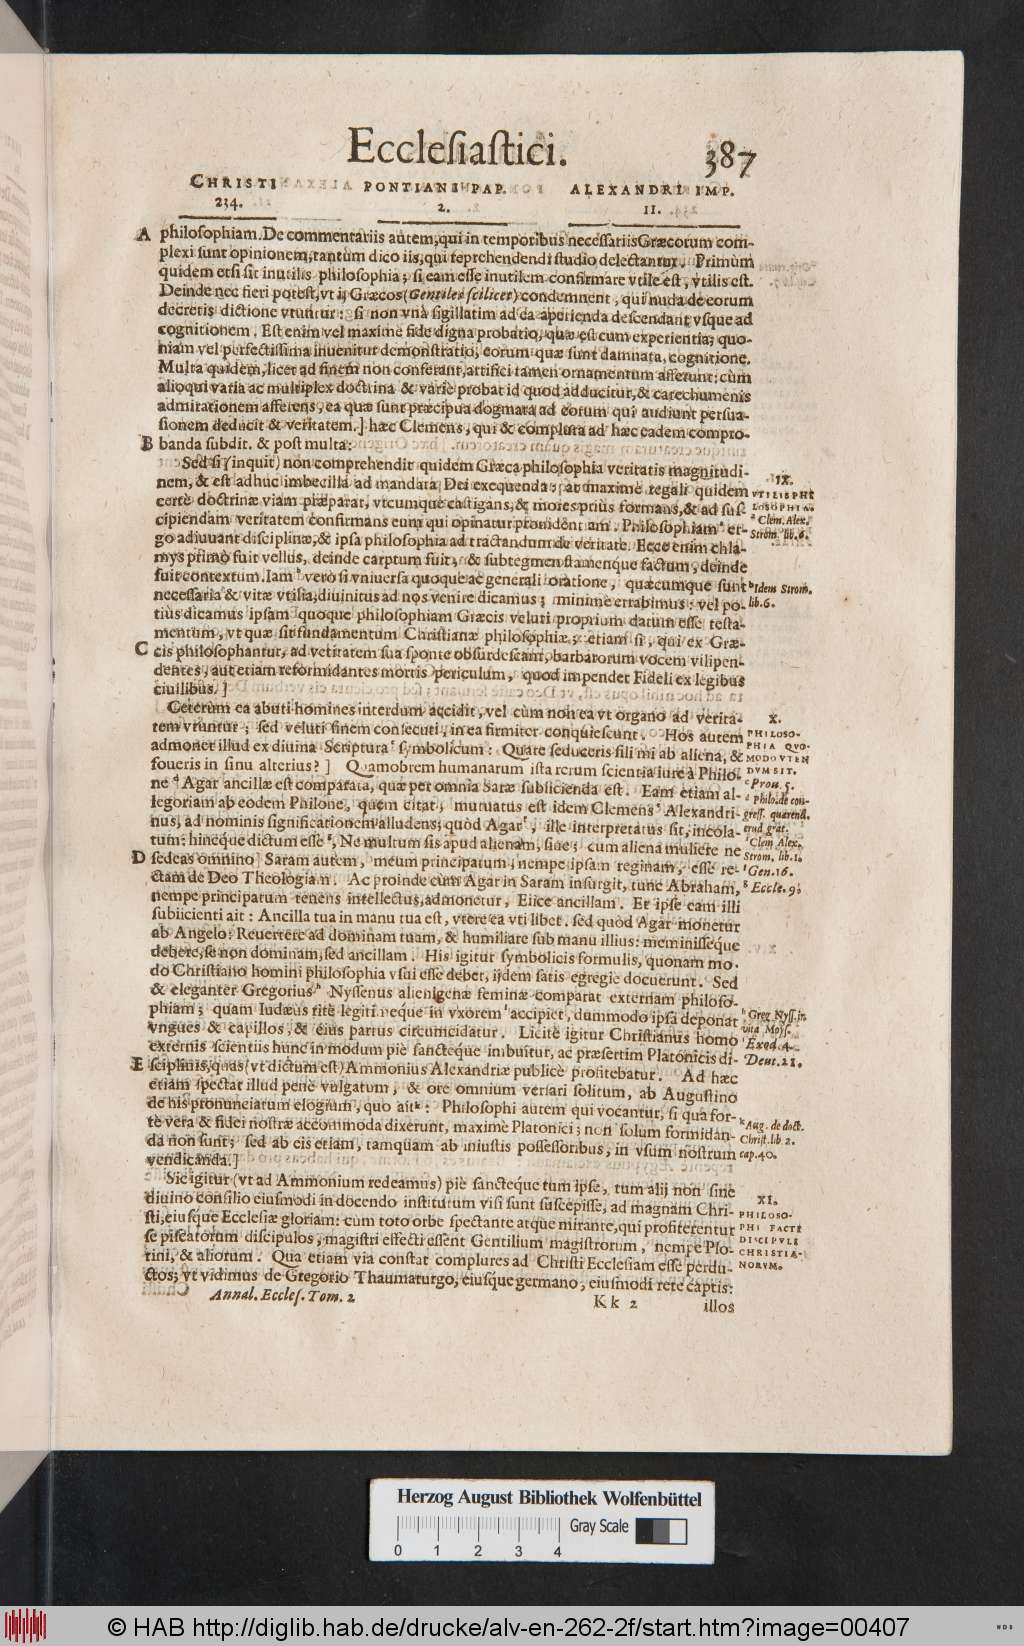 Ecclesiastici. 387
CHRISTI PONTIANI PAP. ALEXANDRI IMP.
234. 2. 11.
A philosophiam. De commentariis autem, qui in temporibus necessariis Græcorum com-
plexi sunt opinionem, tantùm dico iis, qui reprehendendi studio delectantur. Primùm
quidem etsi sit inutilis philosophia; si eam esse inutilem confirmare vtile est, vtilis est.
Deinde nec fieri potest, vt ij Græcos (Gentiles scilicet) condemnent, qui nuda de eorum
decretis dictione vtuntur: si non vnà sigillatim ad ea aperienda descendant vsque ad
cognitionem. Est enim vel maximè fide digna probatio, quæ est cum experientia; quo-
niam vel perfectissima inuenitur demonstratio, eorum quæ sunt damnata, cognitione.
Multa quidem, licet ad finem non conferant, artifici tamen ornamentum afferunt: cùm
alioqui varia ac multiplex doctrina & variè probat id quod adducitur, & catechumenis
admirationem afferens, ea quæ sunt præcipua dogmata ad eorum qui audiunt persua-
sionem deducit & veritatem.] hæc Clemens, qui & complura ad hæc eadem compro-
B banda subdit. & post multa:
Sed si (inquit) non comprehendit quidem Græca philosophia veritatis magnitudi-
nem, & est adhuc imbecilla ad mandata Dei exequenda: at maximè regali quidem
certè doctrinæ viam præparat, vtcumque castigans, & mores priùs formans, & ad sus-
cipiendam veritatem confirmans eum qui opinatur prouidentiam. Philosophiam a er-
go adiuuant disciplinæ, & ipsa philosophia ad tractandum de veritate. Ecce enim chla-
mys primò fuit vellus, deinde carptum fuit, & subtegmen stamenque factum, deinde
fuit contextum. Iam b verò si vniuersa quoque ac generali oratione, quæcumque sunt
necessaria & vitæ vtilia, diuinitus ad nos venire dicamus; minimè errabimus: vel po-
tiùs dicamus ipsam quoque philosophiam Græcis veluti proprium datum esse testa-
mentum, vt quæ sit fundamentum Christianæ philosophiæ; etiam si, qui ex Græ-
C cis philosophantur, ad veritatem sua sponte obsurdescant, barbarorum vocem vilipen-
dentes, aut etiam reformidantes mortis periculum, quod impendet Fideli ex legibus
ciuilibus.]
Ceterùm ea abuti homines interdum accidit, vel cùm non ea vt organo ad verita-
tem vtuntur; sed veluti finem consecuti, in ea firmiter conquiescunt. Hos autem
admonet illud ex diuina Scriptura c symbolicum: Quare seduceris fili mi ab aliena, &
foueris in sinu alterius?] Quamobrem humanarum ista rerum scientia iure à Philo-
ne d Agar ancillæ est comparata, quæ per omnia Saræ subiicienda est. Eam etiam al-
legoriam ab eodem Philone, quem citat, mutuatus est idem Clemens e Alexandri-
nus, ad nominis significationem alludens; quòd Agar f, ille interpretatus sit, incola-
tum: hincque dictum esse g, Ne multum sis apud alienam, siue; cum aliena muliere ne
D sedeas omnino] Saram autem, meum principatum, nempe ipsam reginam, esse re-
ctam de Deo Theologiam. Ac proinde cùm Agar in Saram insurgit, tunc Abraham,
nempe principatum tenens intellectus, admonetur, Eiice ancillam. Et ipse eam illi
subiicienti ait: Ancilla tua in manu tua est, vtere ea vti libet. sed quòd Agar monetur
ab Angelo: Reuertere ad dominam tuam, & humiliare sub manu illius: meminisseque
debere, se non dominam, sed ancillam. His igitur symbolicis formulis, quonam mo-
do Christiano homini philosophia vsui esse debet, ijdem satis egregiè docuerunt. Sed
& eleganter Gregorius h Nyssenus alienigenæ feminæ comparat externam philoso-
phiam; quam Iudæus ritè legitimeque in vxorem i accipiet, dummodo ipsa deponat
vngues & capillos, & eius partus circumcidatur. Licitè igitur Christianus homo
externis scientiis hunc in modum piè sanctéque imbuitur, ac præsertim Platonicis di-
E sciplinis, quas (vt dictum est) Ammonius Alexandriæ publicè profitebatur. Ad hæc
etiam spectat illud penè vulgatum, & ore omnium versari solitum, ab Augustino
de his pronunciatum elogium, quo ait k: Philosophi autem qui vocantur, si qua for-
tè vera & fidei nostræ accommoda dixerunt, maximè Platonici; non solum formidan-
da non sunt; sed ab eis etiam, tamquam ab iniustis possessoribus, in vsum nostrum
vendicanda.]
Sic igitur (vt ad Ammonium redeamus) piè sanctéque tum ipse, tum alij non sine
diuino consilio eiusmodi in docendo institutum visi sunt suscepisse, ad magnam Chri-
sti, eiusque Ecclesiæ gloriam: cum toto orbe spectante atque mirante, qui profiterentur
se piscatorum discipulos, magistri effecti essent Gentilium magistrorum, nempe Plo-
tini, & aliorum. Qua etiam via constat complures ad Christi Ecclesiam esse perdu-
ctos; vt vidimus de Gregorio Thaumaturgo, eiusque germano, eiusmodi rete captis:
Annal. Eccles. Tom. 2 Kk 2 illos
IX.
VTILIS PHI
LOSOPHIA.
a Clem. Alex.
Strom. lib. 6.
b Idem Strom.
lib. 6.
X.
PHILOSO-
PHIA QVO-
MODO VTEN
DVM SIT.
c Prou. 5.
d Philo de con-
gress. quærend.
erud. grat.
e Clem Alex.
Strom. lib. 1.
f Gen. 16.
g Eccle. 9.
h Greg Nyss. in
vita Moys.
i Exod. 4.
Deut. 21.
k Aug. de doct.
Christ. lib 2.
cap. 40.
XI.
PHILOSO-
PHI FACTI
DISCIPVLI
CHRISTIA-
NORVM.
Herzog August Bibliothek Wolfenbüttel
Gray Scale
0 1 2 3 4
© HAB http://diglib.hab.de/drucke/alv-en-262-2f/start.htm?image=00407